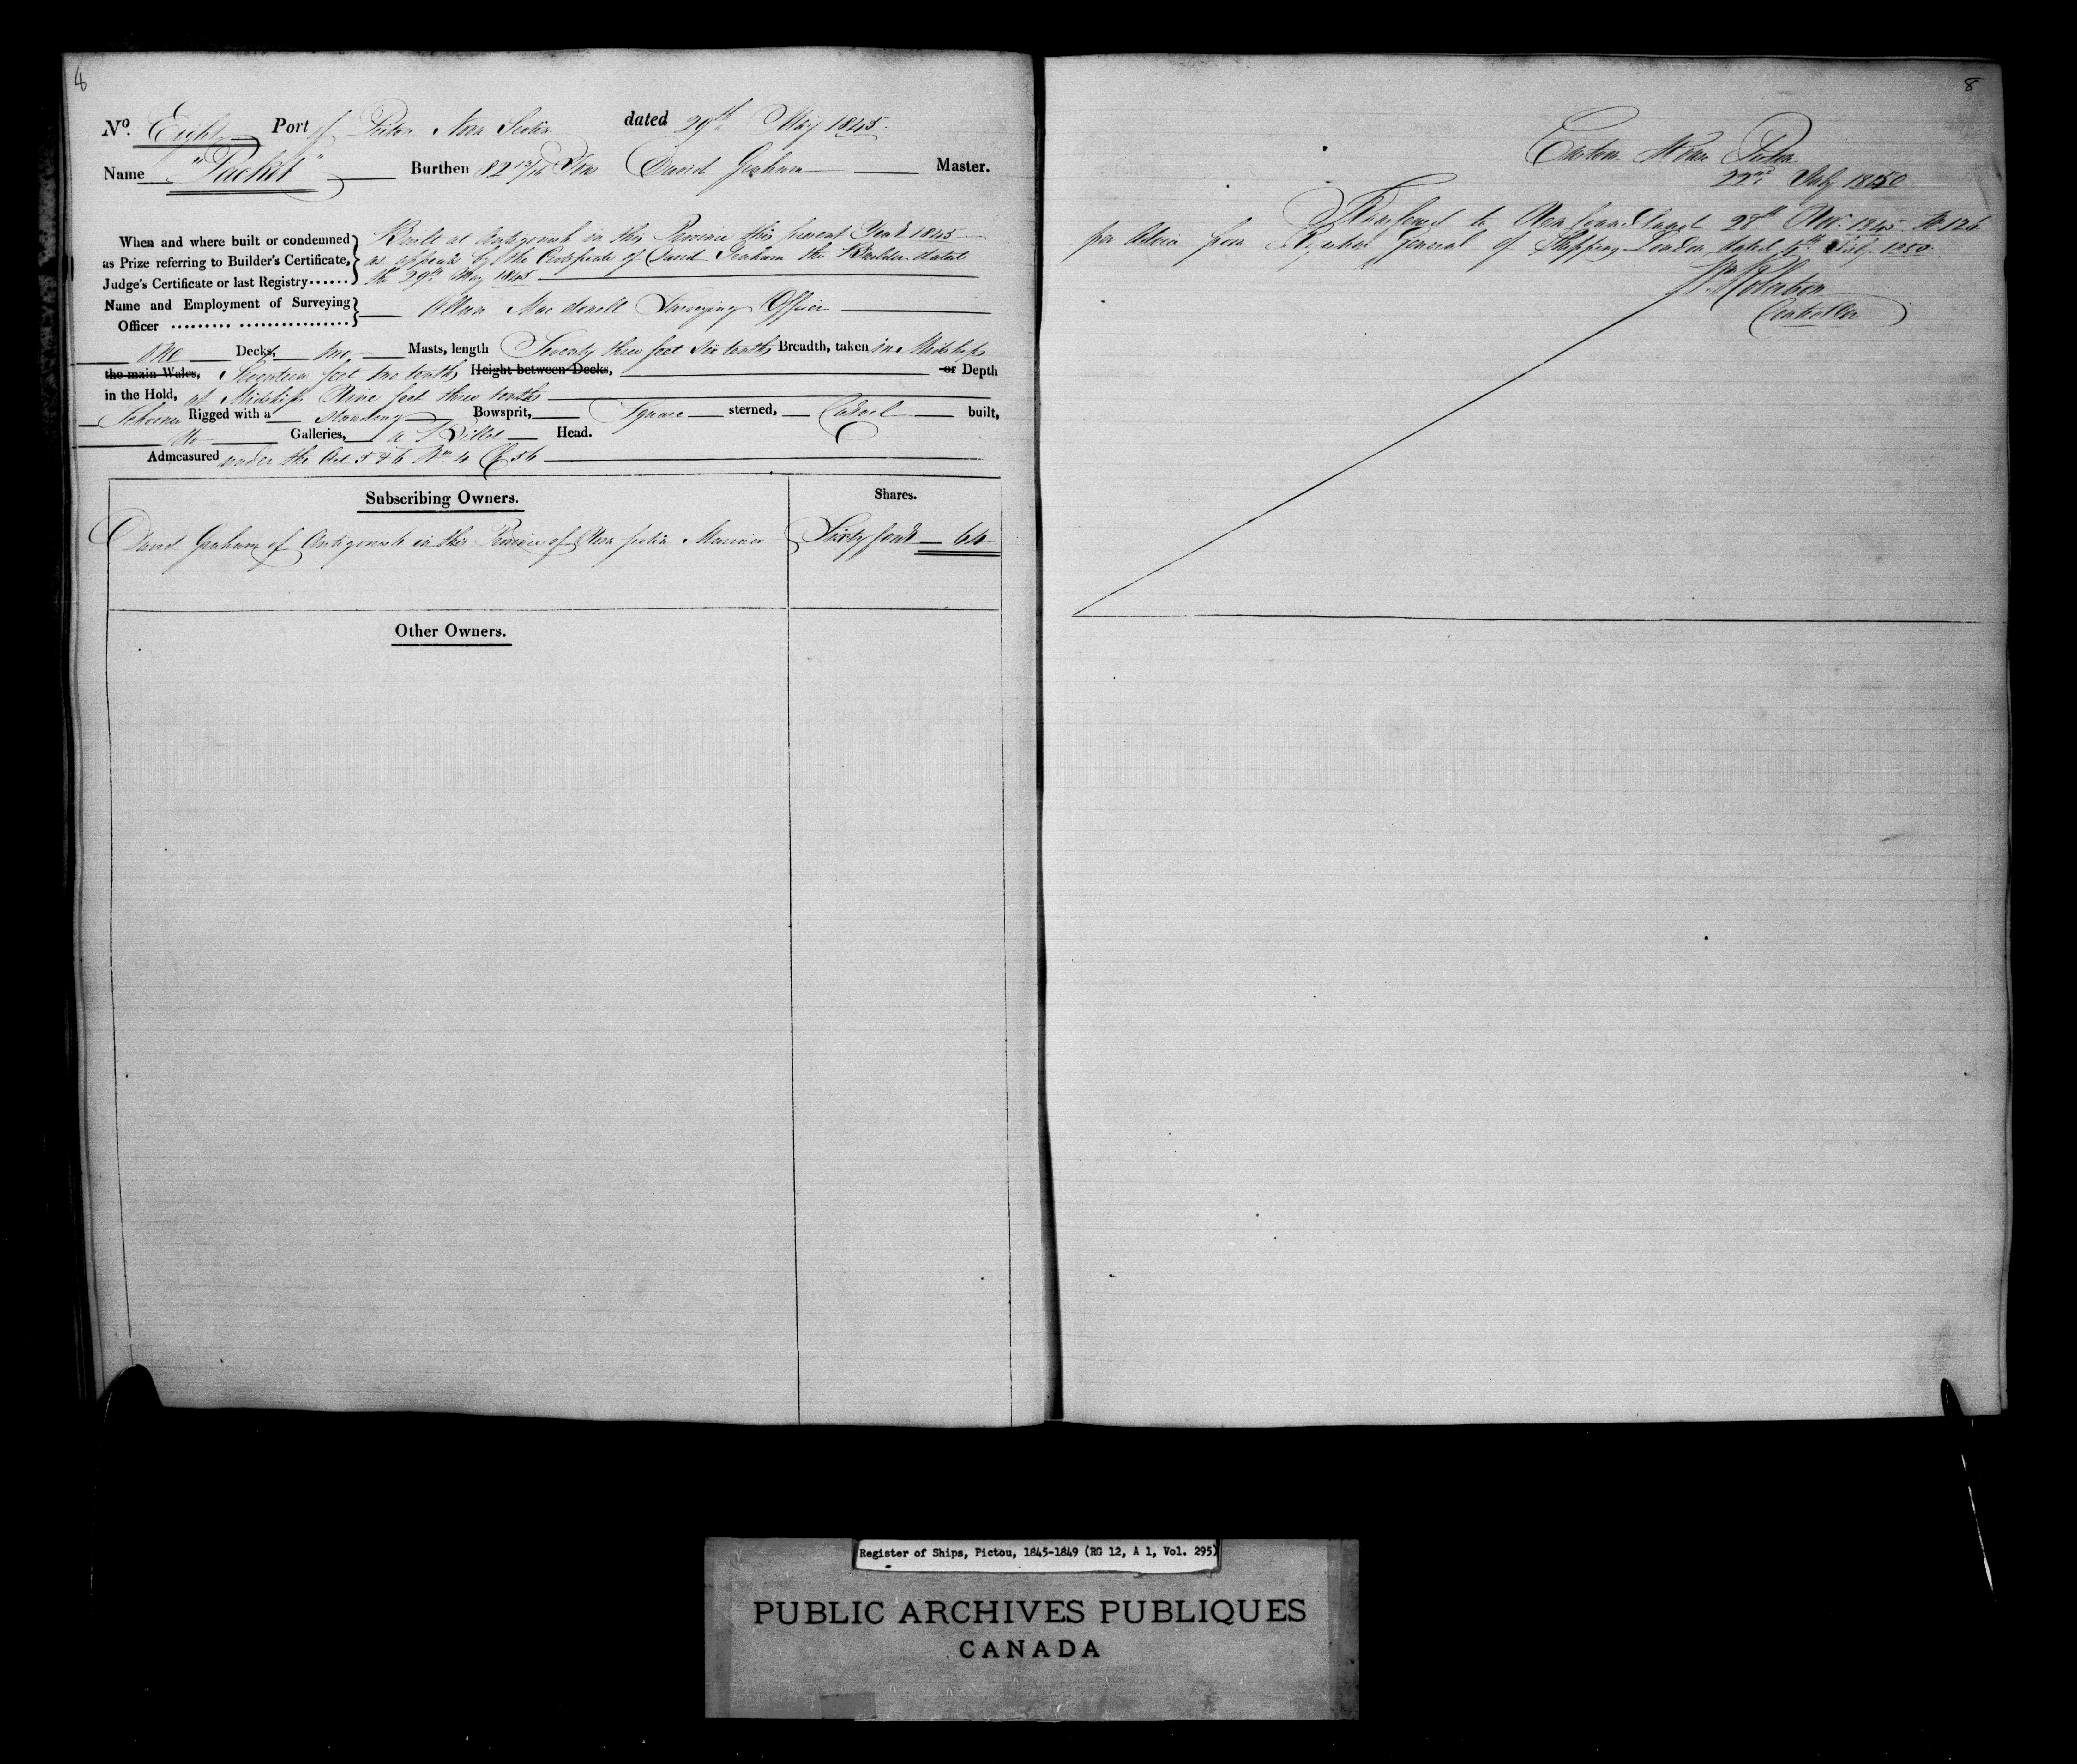 8
No. Eight Port of Pictou Nova Scotia dated 29th May 1845.
Name "Packet" Burthen 82 Tons David Graham Master.
When and where built or condemned as Prize referring to Builder's Certificate, Judge's Certificate or last Registry......
Built at Antigonish in this Province this present Year 1845
as appears by the Certificate of David Graham the Builder dated
the 29th May 1845
Name and Employment of Surveying Officer
Allan MacDonell Surveying Officer
One Decks, Masts, length Seventy three feet six tenths Breadth, taken in Midships
the main Wales, Seventeen feet tenths Height between Decks, or Depth
in the Hold, at Midships Nine feet three tenths
Schooner Rigged with a standing Bowsprit, Square sterned, Carvel built,
No Galleries, a Billet Head.
Admeasured under the Act 5 & 6 Wm 4 C 56
Subscribing Owners. Shares.
David Graham of Antigonish in the Province of Nova Scotia Mariner Sixty four 64
Other Owners.
8
Custom House Pictou
22nd July 1850
Transferred to Newfoundland 28th Nov. 1845 No 126
per Advice from Registrar General of Shipping London dated July 1850.
Controller
Register of Ships, Pictou, 1845-1849 (RG 12, A 1, Vol. 295)
PUBLIC ARCHIVES PUBLIQUES
CANADA